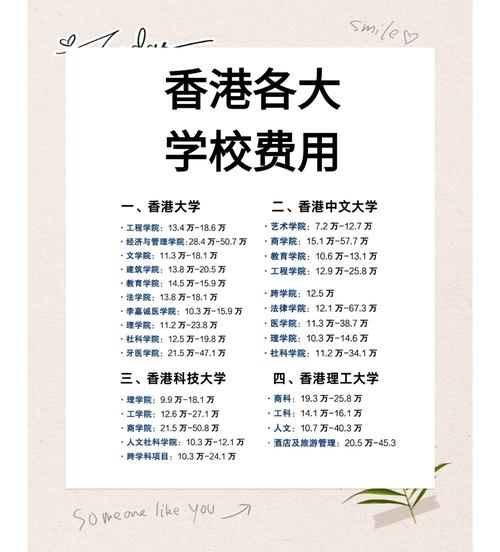 Today
smile
香港各大
学校费用
一、香港大学
· 工程学院：13.4 万-18.6 万
· 经济与管理学院:28.4 万-50.7 万
· 文学院：11.3 万-18.1 万
· 建筑学院：13.8 万-20.5 万
· 教育学院：14.5 万-15.9 万
· 法学院：13.8 万-18.1 万
· 李嘉诚医学院：10.3 万-15.9 万
· 理学院：11.2 万-23.8 万
· 社科学院：12.5 万-19.8 万
· 牙医学院：21.5 万-47.1 万
二、香港中文大学
· 艺术学院：7.2 万-12.7 万
· 商学院：15.1 万-57.7 万
· 教育学院：10.6 万-13.1 万
· 工程学院：12.9 万-25.8 万
· 跨学院：12.5 万
· 法律学院：12.1 万-67.3 万
· 医学院：11.3 万-38.7 万
· 理学院：10.3 万-14.6 万
· 社科学院：11.2 万-34.1 万
三、香港科技大学
· 理学院：9.9 万-18.1 万
· 工学院：12.6 万-27.1 万
· 商学院：21.5 万-50.8 万
· 人文社科学院：10.3 万-12.1 万
· 跨学科项目：10.3 万-24.1 万
四、香港理工大学
· 商科：19.3 万-25.8 万
· 工科：14.1 万-16.1 万
· 人文：10.7 万-40.3 万
· 酒店及旅游管理：20.5 万-45.3
Someone like YOU